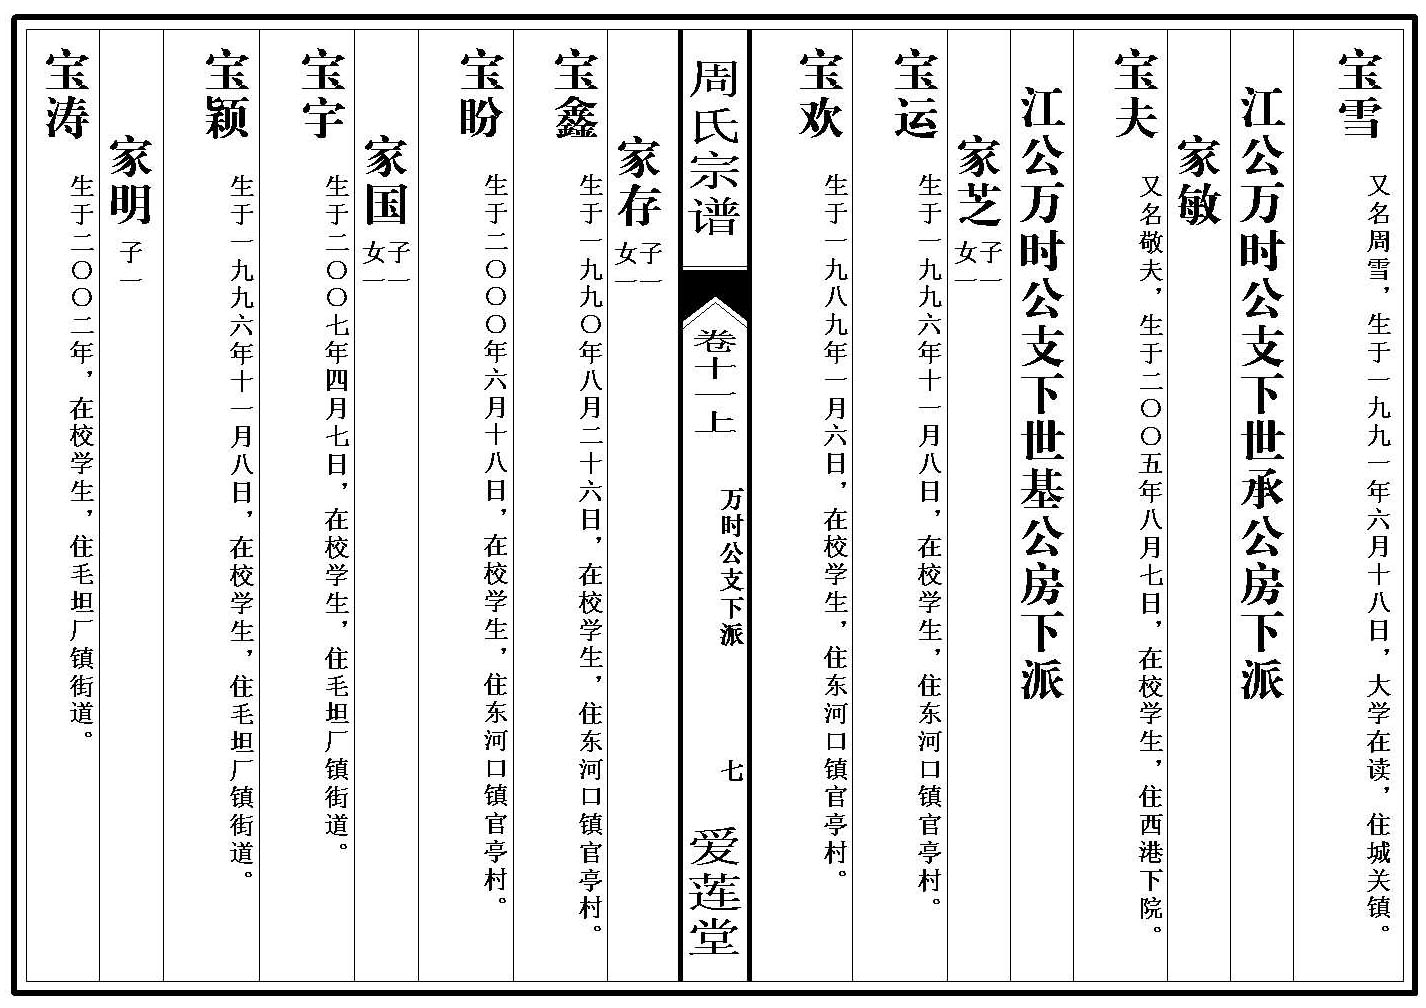 宝雪 又名周雪，生于一九九一年六月十八日，大学在读，住城关镇。
江公万时公支下世承公房下派
家敏
宝夫 又名敬夫，生于二〇〇五年八月七日，在校学生，住西港下院。
江公万时公支下世基公房下派
家芝 子一 女一
宝运 生于一九九六年十一月八日，在校学生，住东河口镇官亭村。
宝欢 生于一九八九年一月六日，在校学生，住东河口镇官亭村。
周氏宗谱 卷十一上 万时公支下派 七 爱莲堂
家存 子一 女一
宝鑫 生于一九九〇年八月二十六日，在校学生，住东河口镇官亭村。
宝盼 生于二〇〇〇年六月十八日，在校学生，住东河口镇官亭村。
家国 子一 女一
宝宇 生于二〇〇七年四月七日，在校学生，住毛坦厂镇街道。
宝颖 生于一九九六年十一月八日，在校学生，住毛坦厂镇街道。
家明 子一
宝涛 生于二〇〇二年，在校学生，住毛坦厂镇街道。